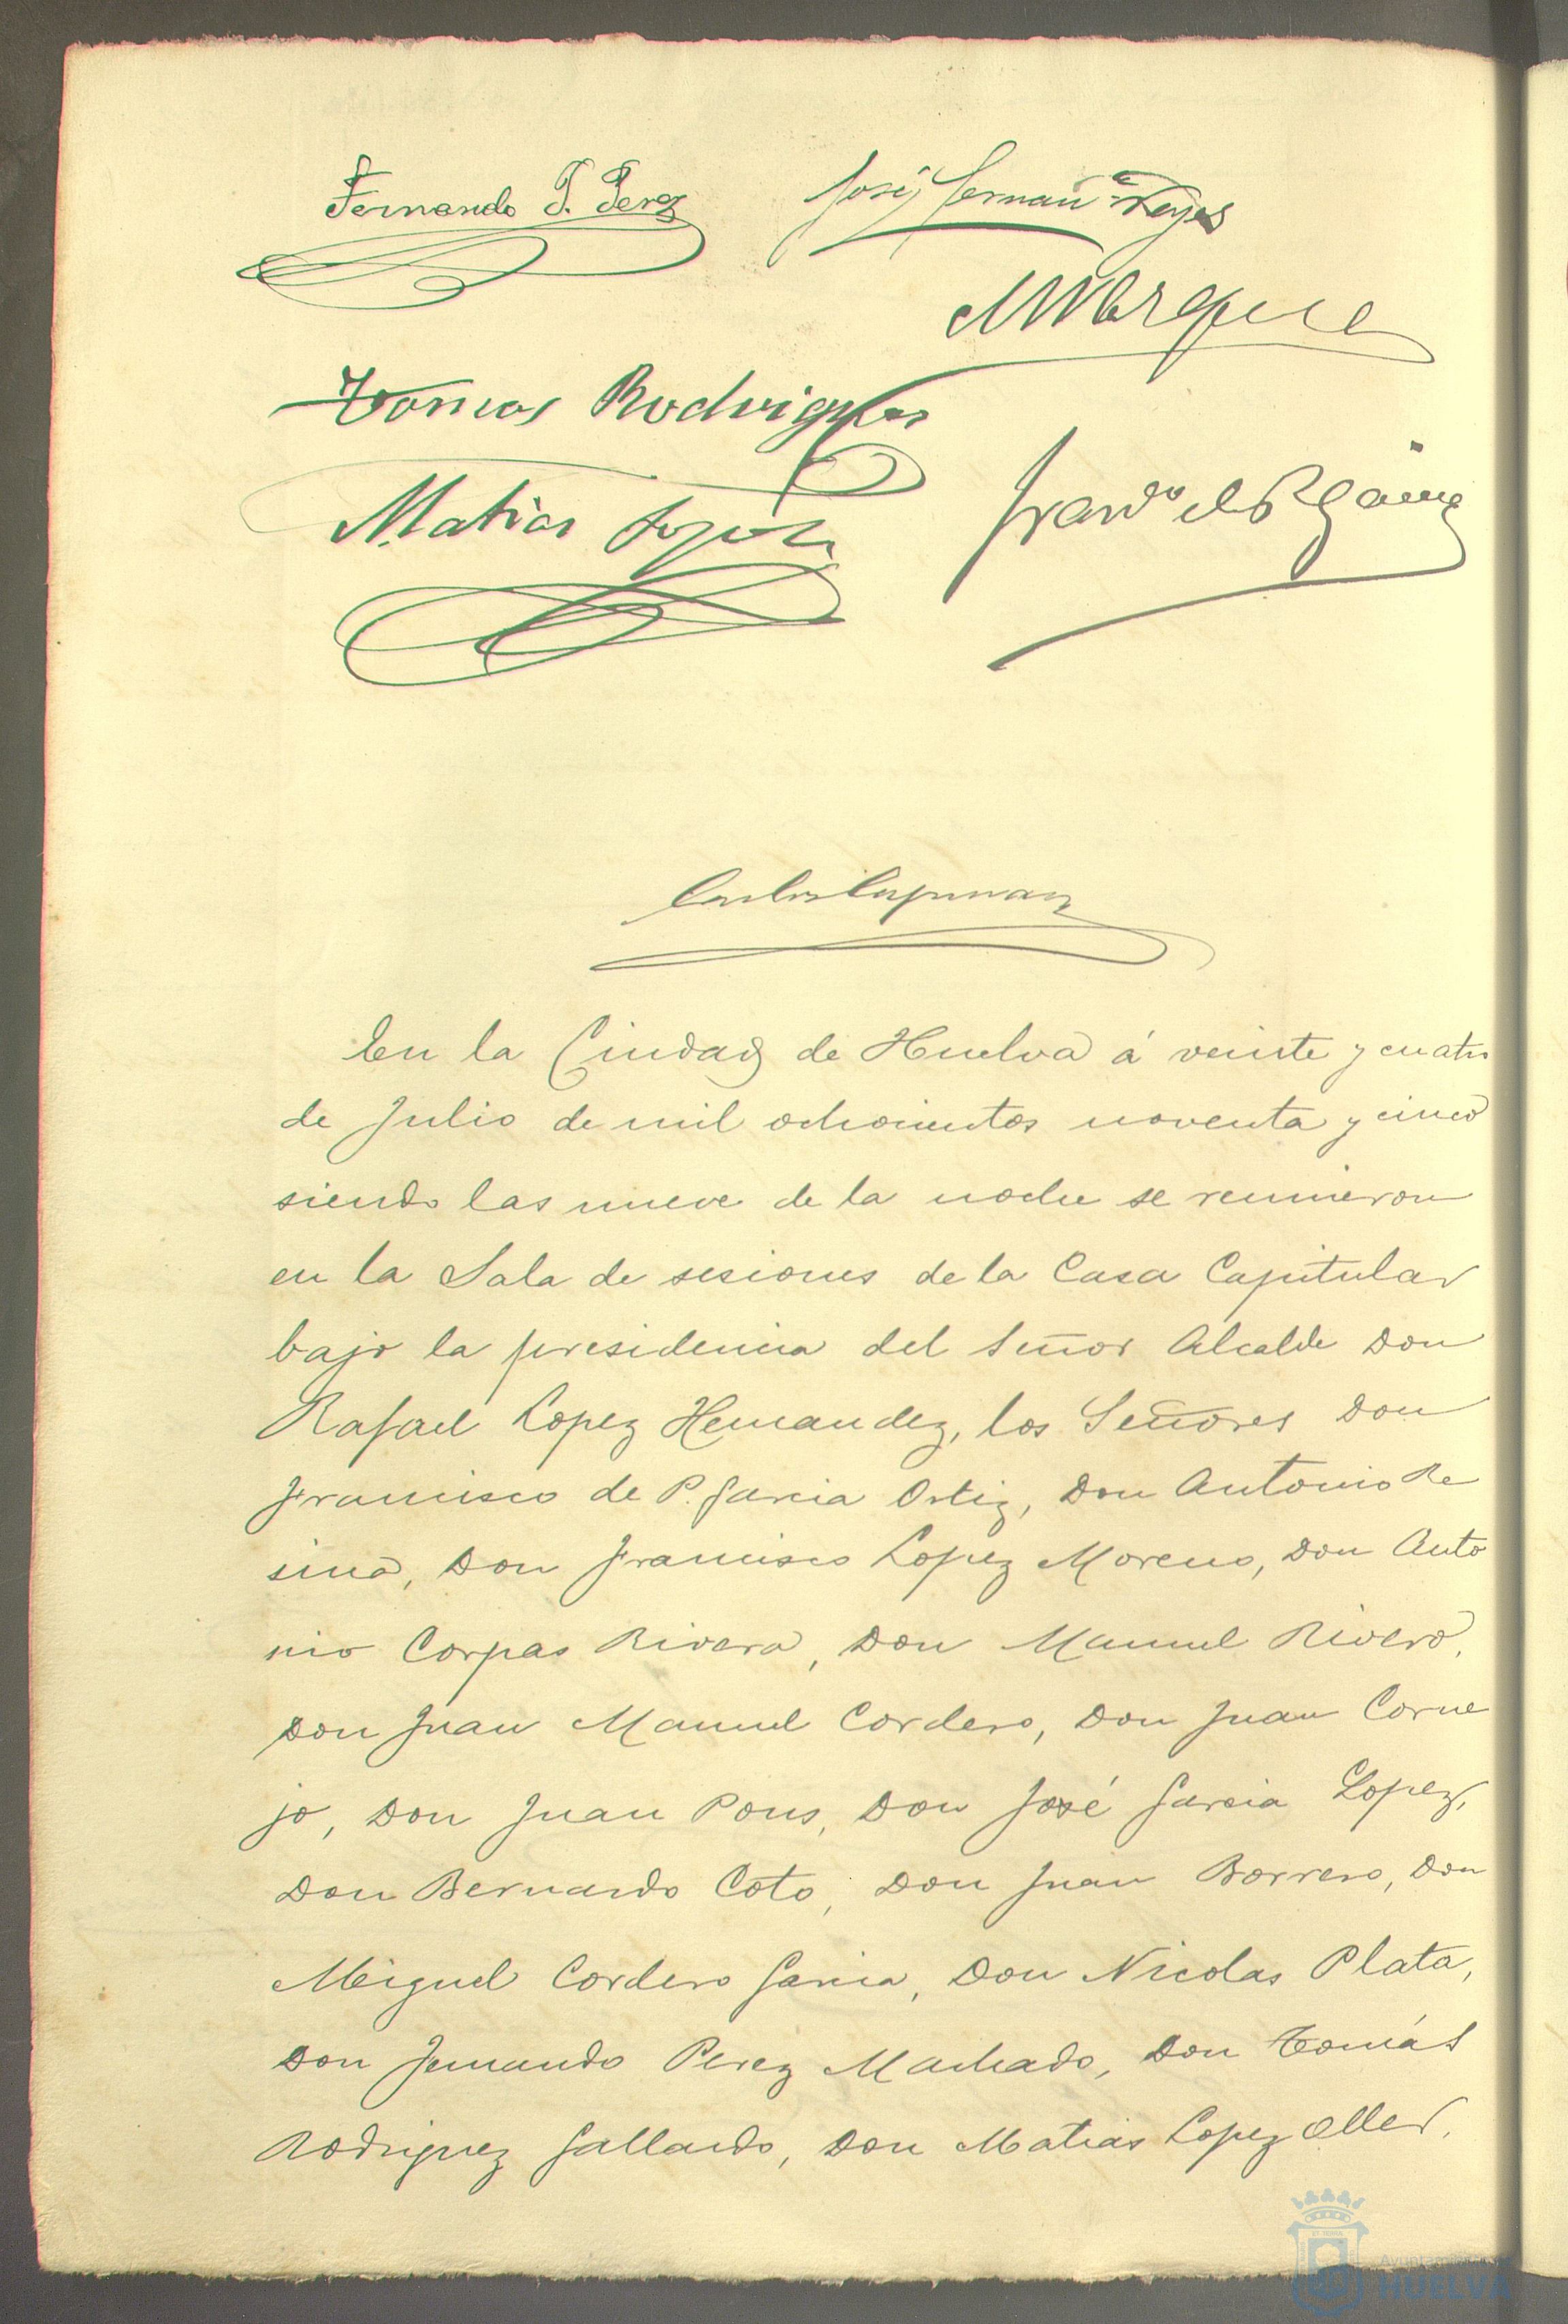 Fernando P. Perez
José Hernan Reyes
Tomas Rodriguez
Matias Lopez
En la Ciudad de Huelva á veinte y cuatro
de Julio de mil ochocientos noventa y cinco
siendo las nueve de la noche se reunieron
en la Sala de sesiones de la Casa Capitular
bajo la presidencia del Señor Alcalde Don
Rafael Lopez Hernandez, los Señores Don
Francisco de P. Garcia Ortiz, Don Antonio Re
sina, Don Francisco Lopez Moreno, Don Anto
nio Corpas Rivera, Don Manuel Rivero,
Don Juan Manuel Cordero, Don Juan Corne
jo, Don Juan Pons, Don José Garcia Lopez,
Don Bernardo Coto, Don Juan Borrero, Don
Miguel Cordero Garcia, Don Nicolas Plata,
Don Fernando Perez Machado, Don Tomás
Rodriguez Gallardo, Don Matias Lopez Oller,
HUELVA